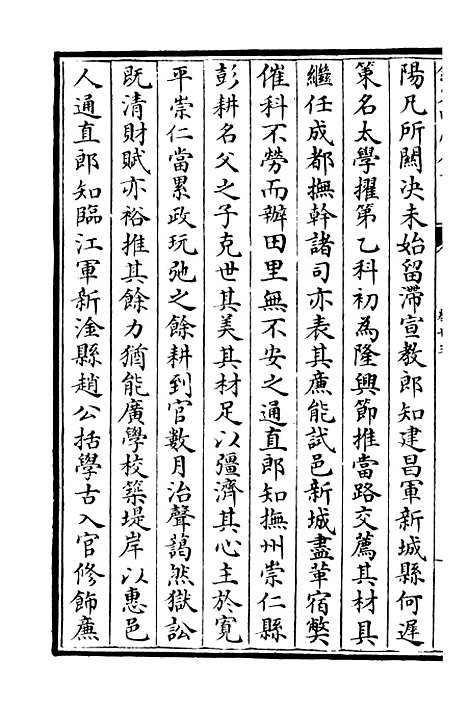 陽凡所關決未始留滯宣教郎知建昌軍新城縣何遲
策名太學擢第乙科初為隆興節推當路交薦其材具
繼任成都撫幹諸司亦表其廉能試邑新城盡革宿獘
催科不勞而辦田里無不安之通直郎知撫州崇仁縣
彭耕名父之子克世其美其材足以彊濟其心主於寬
平崇仁當累政玩弛之餘耕到官數月治聲藹然獄訟
既清財賦亦裕推其餘力猶能廣學校築堤岸以惠邑
人通直郎知臨江軍新淦縣趙公括學古入官修飾廉